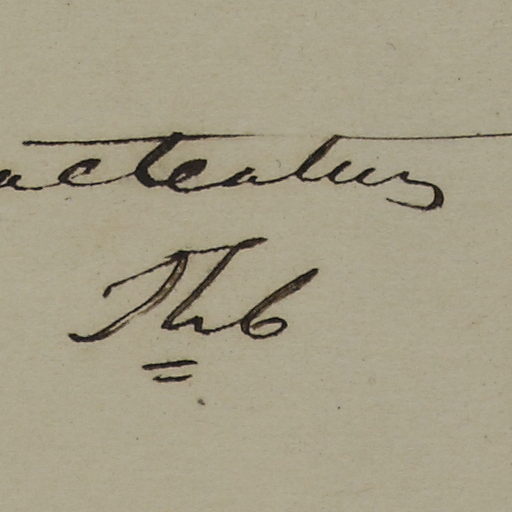 acteatus
Thb